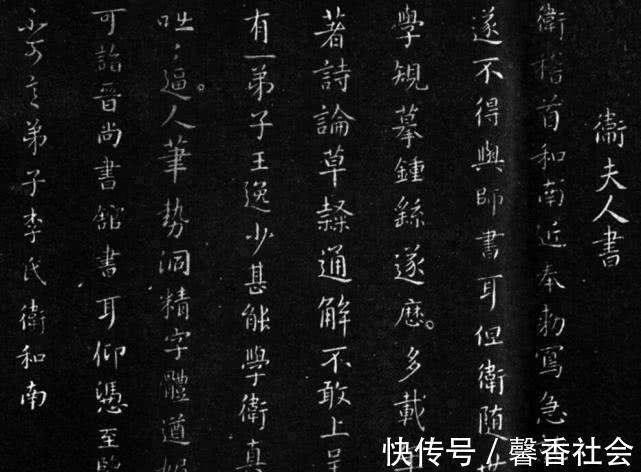 衛夫人書
衛稽首和南近奉勅寫急
遂不得與師書耳但衛随
學規摹鍾繇遂歷多載
著詩論草隸通解不敢上呈
有一弟子王逸少甚能學衛真
咄咄逼人筆勢洞精字體遒媚
可詣晉尚書館書耳仰憑至鑒
弟子李氏衛和南
快传号／馨香社会